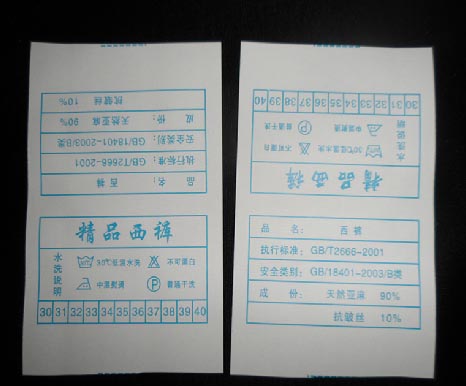 精品西裤
水洗说明
30℃温水水洗 不可漂白
中温熨烫 普通干洗
30 31 32 33 34 35 36 37 38 39 40
品 名： 西裤
执行标准：GB/T2666-2001
安全类别：GB/18401-2003/B类
成 份：天然亚麻 90%
抗皱丝 10%
30 31 32 33 34 35 36 37 38 39 40
水洗说明
中温熨烫 普通干洗
30℃温水水洗 不可漂白
精品西裤
品 名： 西裤
执行标准：GB/T2666-2001
安全类别：GB/18401-2003/B类
成 份： 天然亚麻 90%
抗皱丝 10%